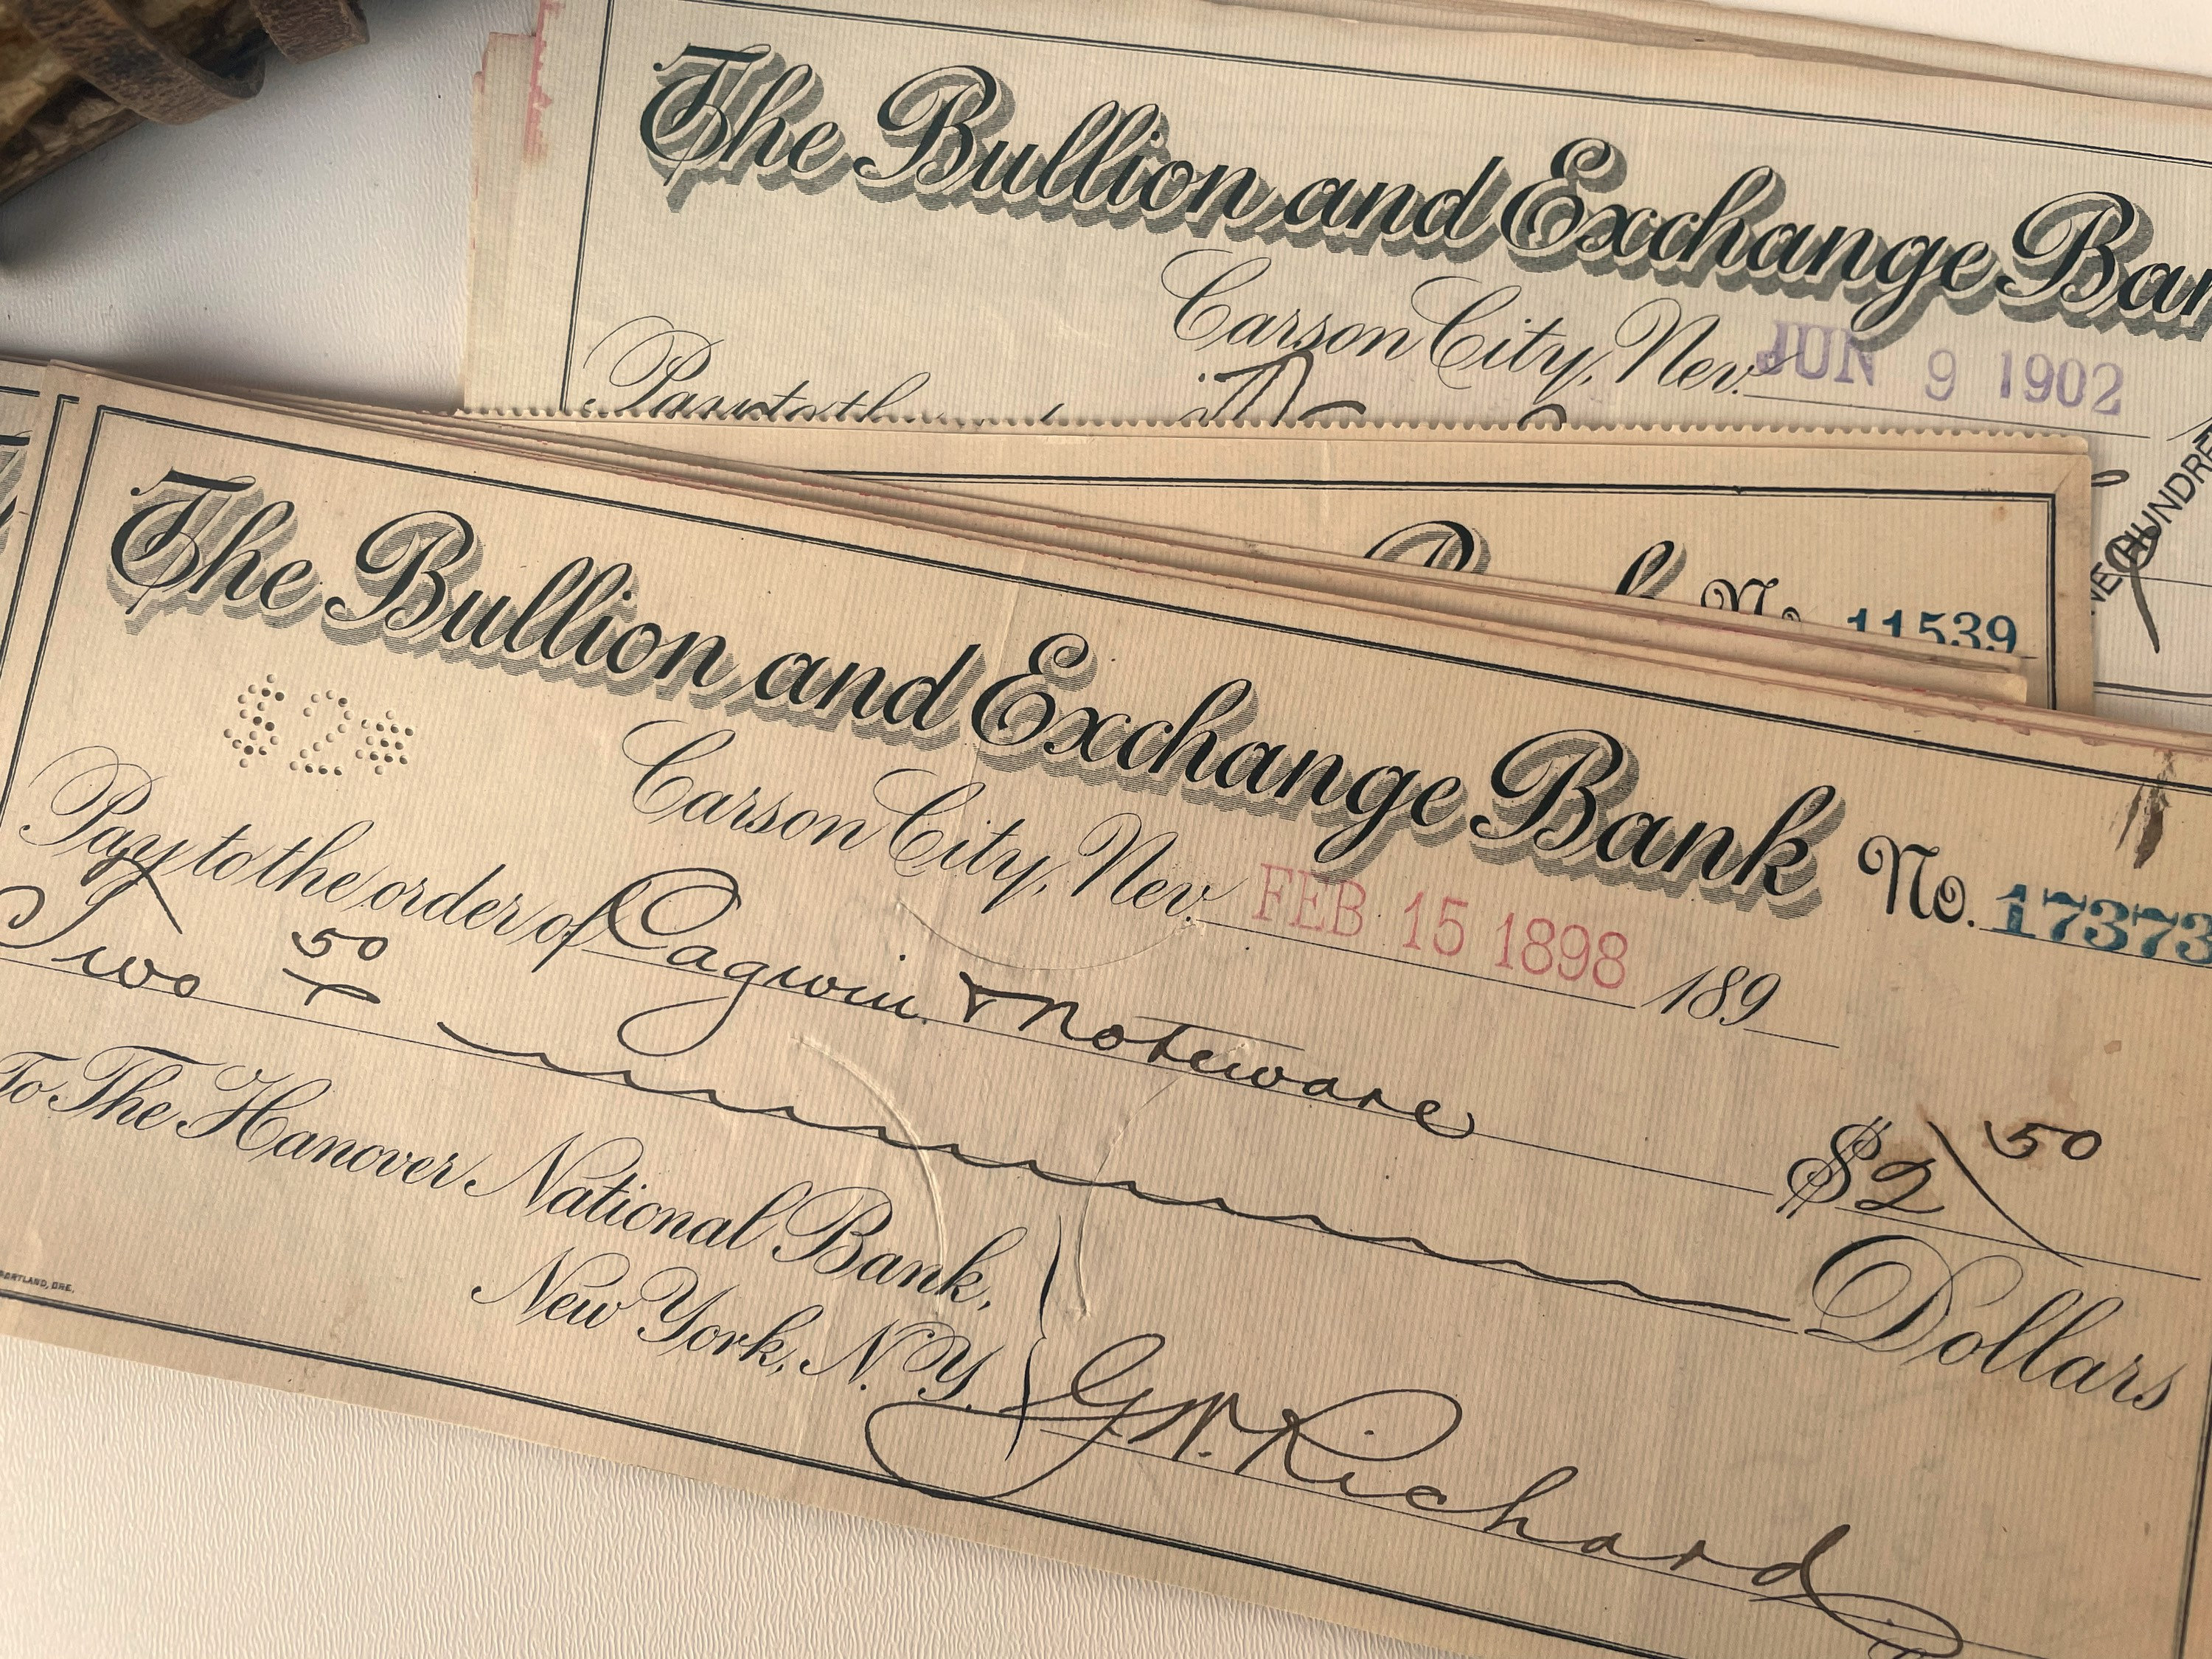 The Bullion and Exchange
Carson City, Nev. JUN 9 1902
Pay to th
No. 11539
The Bullion and Exchange Bank No. 17373
$2
Carson City, Nev. FEB 15 1898 189
Pay to the order of Cagwin & Noteware $2 50
Two 50 Dollars
To The Hanover National Bank,
New York, N.Y.
G.W. Richard
PORTLAND, ORE.